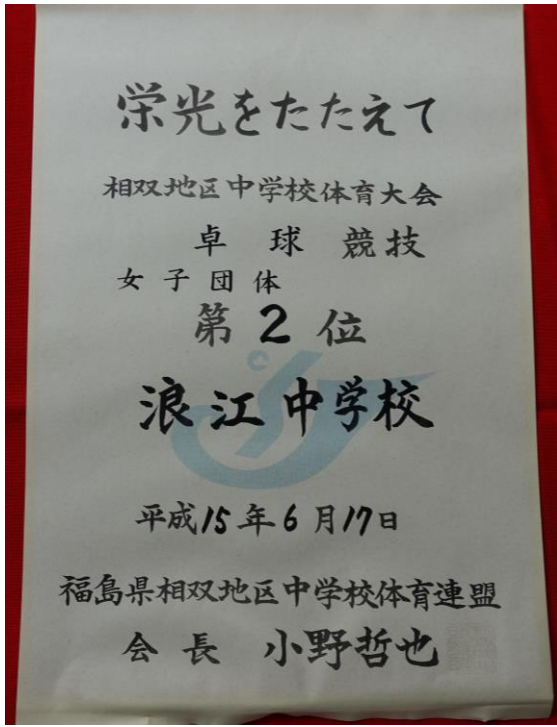 栄光をたたえて
相双地区中学校体育大会
卓球競技
女子団体
第2位
浪江中学校
平成15年6月17日
福島県相双地区中学校体育連盟
会長 小野哲也